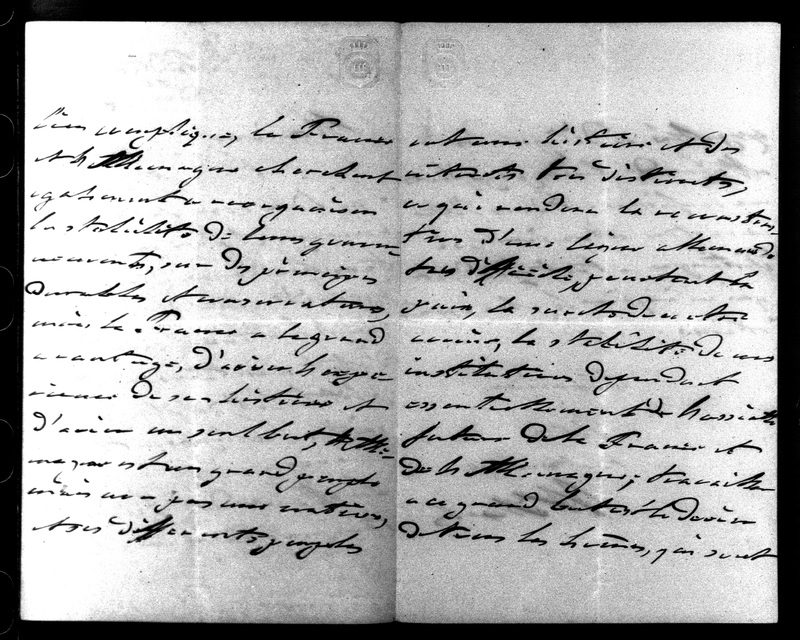 bien compliqué, la France
et l'Allemagne cherchent
egalement a reorganiser
la stabilité de leurs gouver-
nements, sur des principes
durables et conservateurs,
mais la France a le grand
avantage, d'avoir l'expe-
rience de ses histoires et
d'avoir un seul but, l'Alle-
magne est un grand peuple
mais n'a pas une nation,
et ses differents peuples
ont une histoire et des
interets tres distincts,
ce qui rendra la reconstruc-
tion d'une ligue allemande
tres difficile, pourtant la
paix, la sureté de notre
avenir, la stabilité de nos
institutions dependent
essentiellement de l'assiette
future de la France et
de l'Allemagne; travailler
a ce grand but est le devoir
de tous les hommes, qui sont